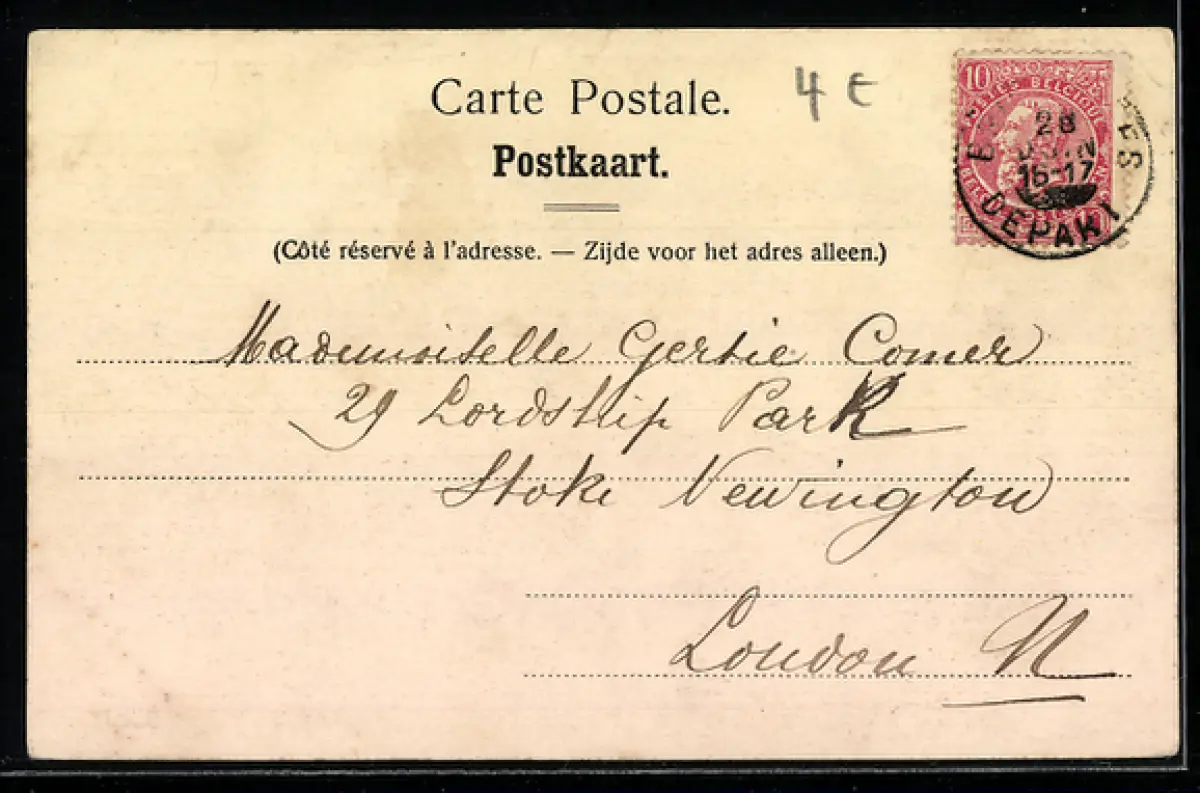 Carte Postale.
4 €
Postkaart.
(Côté réservé à l'adresse. — Zijde voor het adres alleen.)
10
POSTES BELGIQUE
28
16-17
DEPART
Mademoiselle Gertie Comer
29 Lordship Park
Stoke Newington
London N